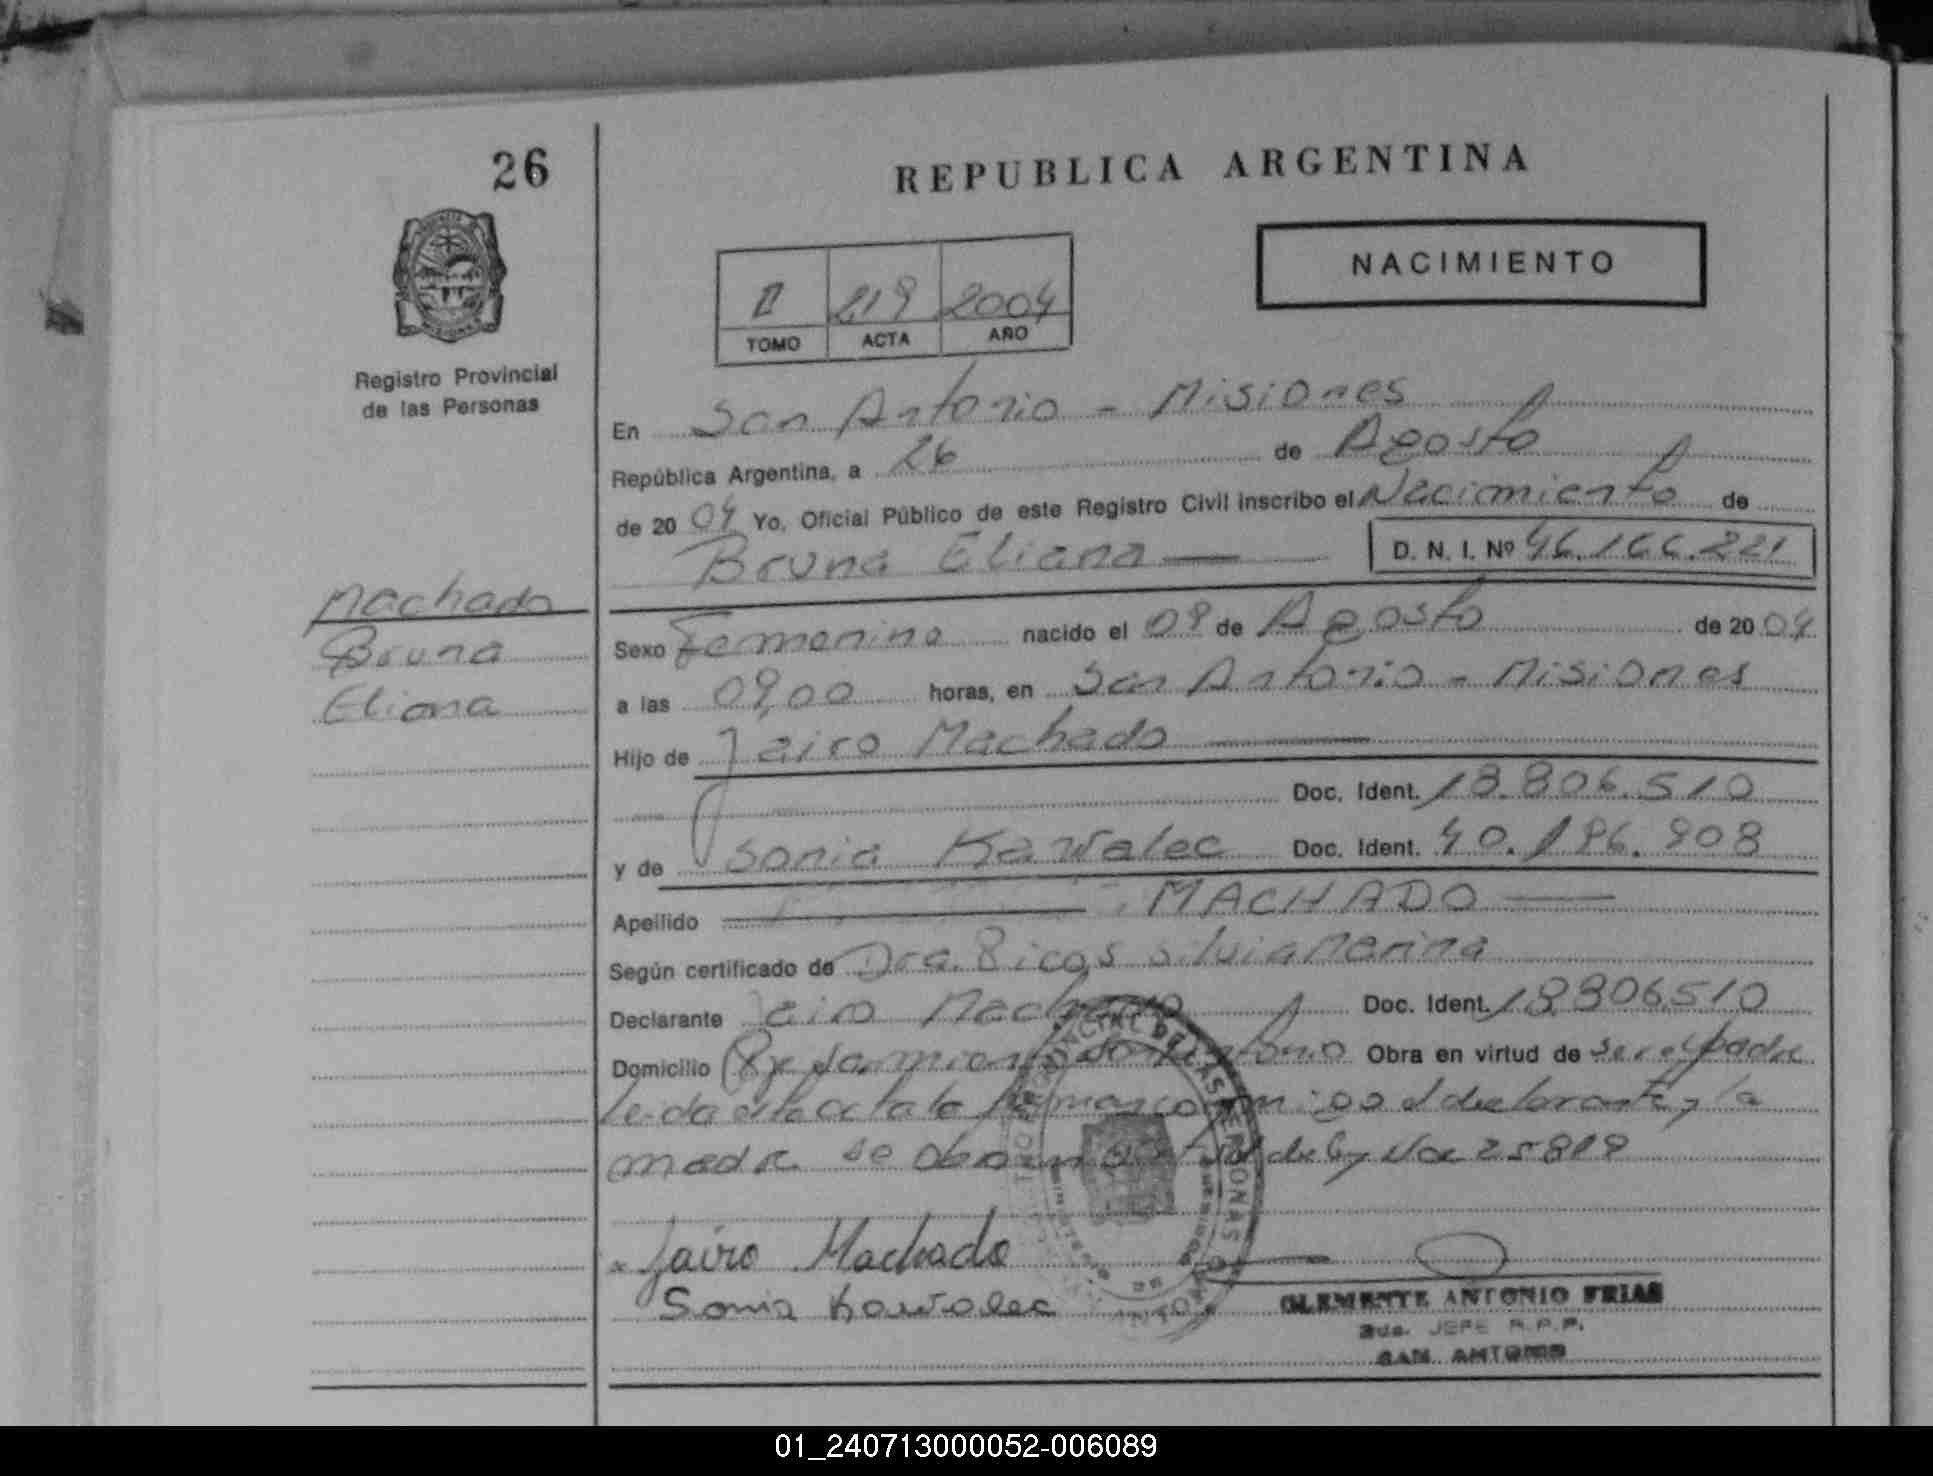 26
REPUBLICA ARGENTINA
NACIMIENTO
II 219 2004
TOMO ACTA AÑO
Registro Provincial
de las Personas
En San Antonio - Misiones
República Argentina, a 26 de Agosto
de 2004 Yo, Oficial Público de este Registro Civil inscribo el Nacimiento de
Bruna Eliana
D. N. I. Nº 46.166.221
Machado
Bruna
Eliana
Sexo Femenino nacido el 09 de Agosto de 2004
a las 09,00 horas, en San Antonio - Misiones
Hijo de Jairo Machado
Doc. Ident. 18.806.510
y de Sonia Kawalec Doc. Ident. 40.196.908
Apellido MACHADO
Según certificado de Dra.
Declarante Jairo Machado Doc. Ident. 18.806.510
Domicilio San Antonio Obra en virtud de ser el padre
Leida el acta la conmigo el declarante y la
madre de ley Nº 25819
Jairo Machado
Sonia Kawalec
CLEMENTE ANTONIO FRIAS
2do. JEFE R.P.P.
SAN ANTONIO
01_240713000052-006089